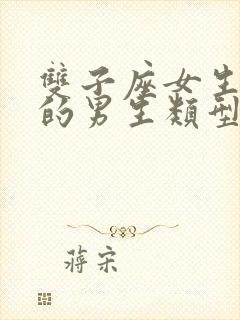 雙子座女生
的男生類型
蔣宋